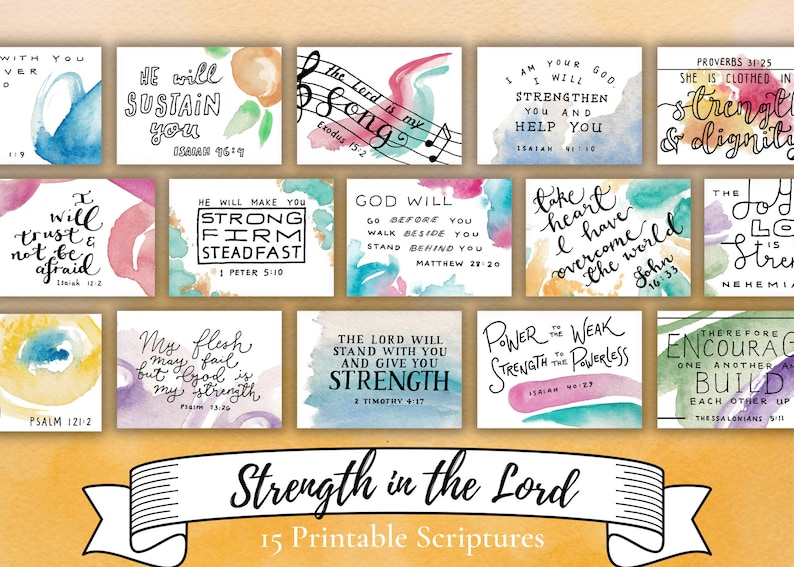 WITH YOU
VER
1:9
HE will
SUSTAIN
you
ISAIAH 46:4
the Lord is my
Song
Exodus 15:2
I AM YOUR GOD.
I WILL
STRENGTHEN
YOU AND
HELP YOU
ISAIAH 41:10
PROVERBS 31:25
SHE IS CLOTHED IN
strength
& dignity
I
will
trust &
not be
afraid
Isaiah 12:2
HE WILL MAKE YOU
STRONG
FIRM
STEADFAST
1 PETER 5:10
GOD WILL
GO BEFORE YOU
WALK BESIDE YOU
STAND BEHIND YOU
MATTHEW 28:20
take
heart
I have
overcome
the world
John
16:33
THE
JOY
LO
IS
Stren
NEHEMIA
PSALM 121:2
My flesh
may fail
but God is
my strength
Psalm 73:26
THE LORD WILL
STAND WITH YOU
AND GIVE YOU
STRENGTH
2 TIMOTHY 4:17
POWER TO THE WEAK
STRENGTH TO THE POWERLESS
ISAIAH 40:29
THEREFORE
ENCOURAG
ONE ANOTHER AN
BUILD
EACH OTHER UP
THESSALONIANS 5:11
Strength in the Lord
15 Printable Scriptures